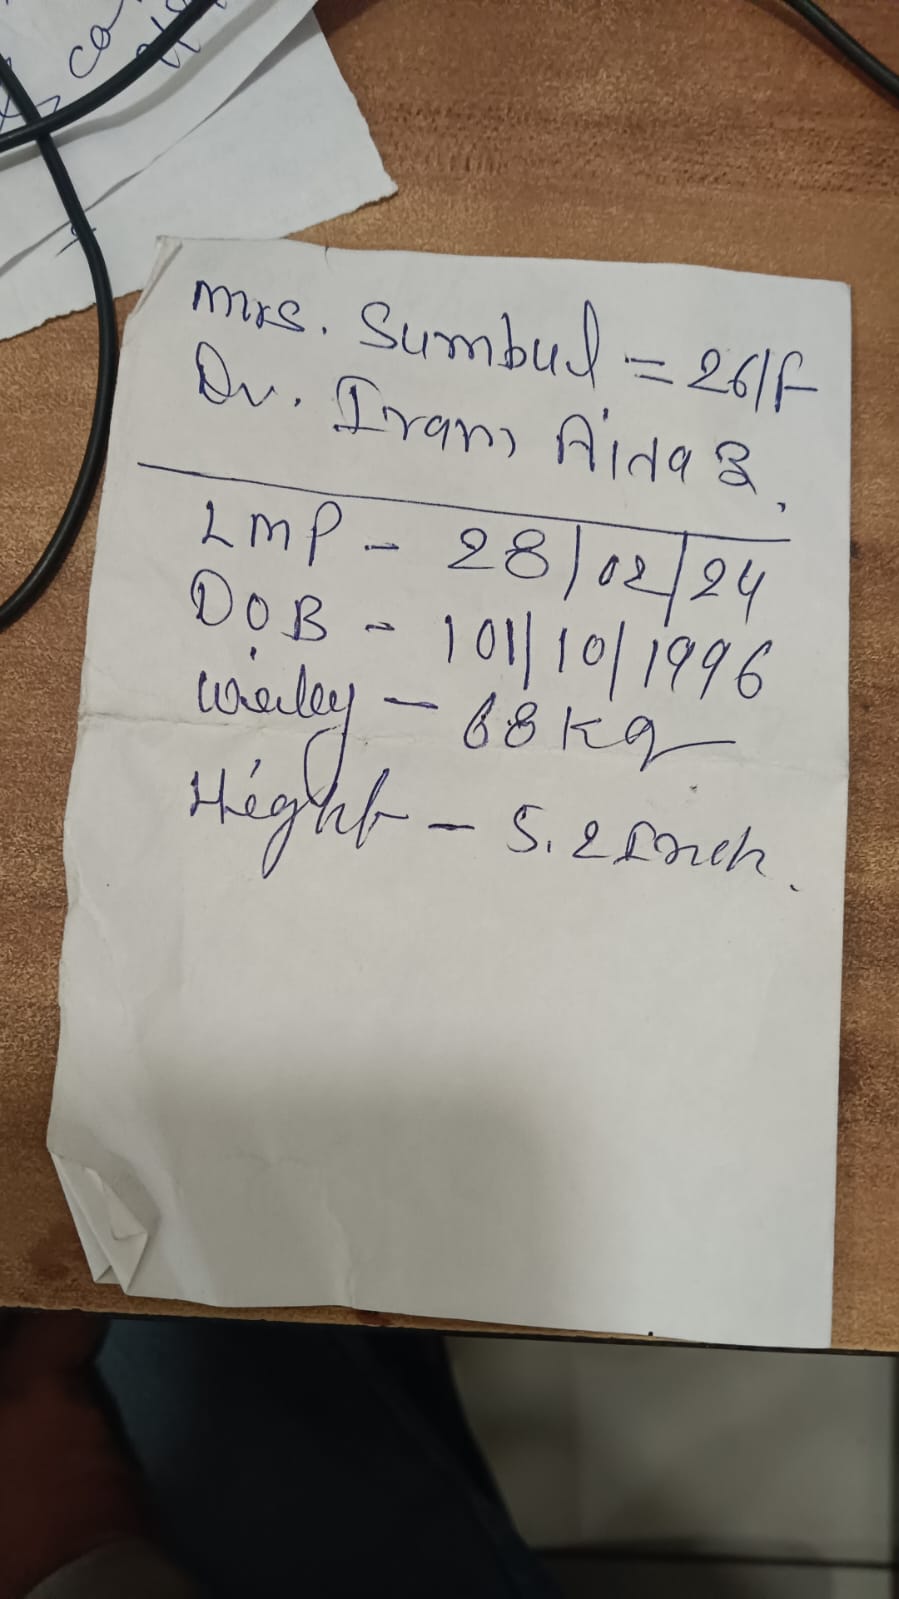 co
Mrs. Sumbul = 26/F
Dr. Iram Aida
LMP - 28/02/24
DOB - 101/10/1996
- 68 Kg
Hight - 5.2 Inch.